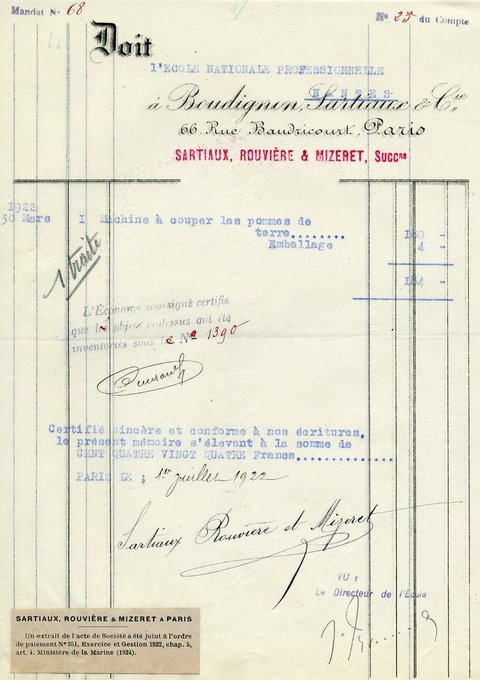 Mandat N° 68
N° 25 du Compte
Doit
l'ECOLE NATIONALE PROFESSIONNELLE
NANTES
à Boudignon, Sartiaux & Cie
66 Rue Baudricourt, Paris
SARTIAUX, ROUVIÈRE & MIZERET, Succrs
1922
30 Mars I Machine à couper les pommes de
terre........ 180 -
Emballage 4 -
184 -
1 traite
L'Économe soussigné certifie
que les objets ci-dessus ont été
inventoriés sous le N° 1390
Certifié sincère et conforme à nos écritures,
le présent mémoire s'élevant à la somme de
CENT QUATRE VINGT QUATRE Francs..............
PARIS LE ; 1er juillet 1922
Sartiaux Rouvière et Mizeret
VU :
Le Directeur de l'École
SARTIAUX, ROUVIÈRE & MIZERET A PARIS
Un extrait de l'acte de Société a été joint à l'ordre
de paiement N° 351, Exercice et Gestion 1922, chap. 5,
art. 4. Ministère de la Marine (1934).